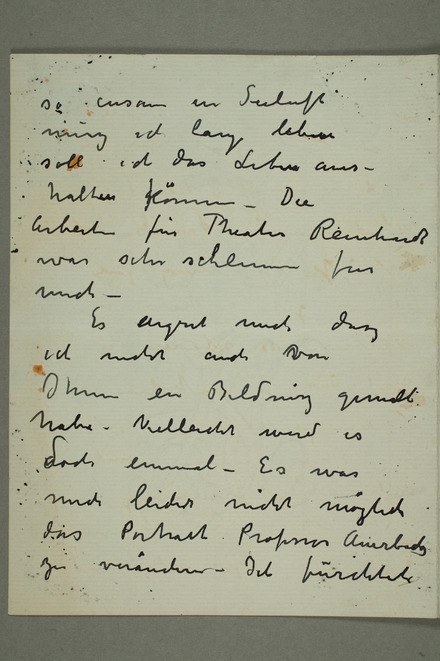 so einsam in Seeluft
muss ich lang leben
soll ich das Leben aus-
halten können – Die
Arbeiten für Theater Reinhardt
war sehr schlimm für
mich –
Es ärgert mich dass
ich nicht auch von
Ihnen ein Bildniss gemalt
habe – Vielleicht wird es
doch einmal – Es war
mich leider nicht möglich
das Portrait Professor Auerbachs
zu verändern – Ich fürchtete